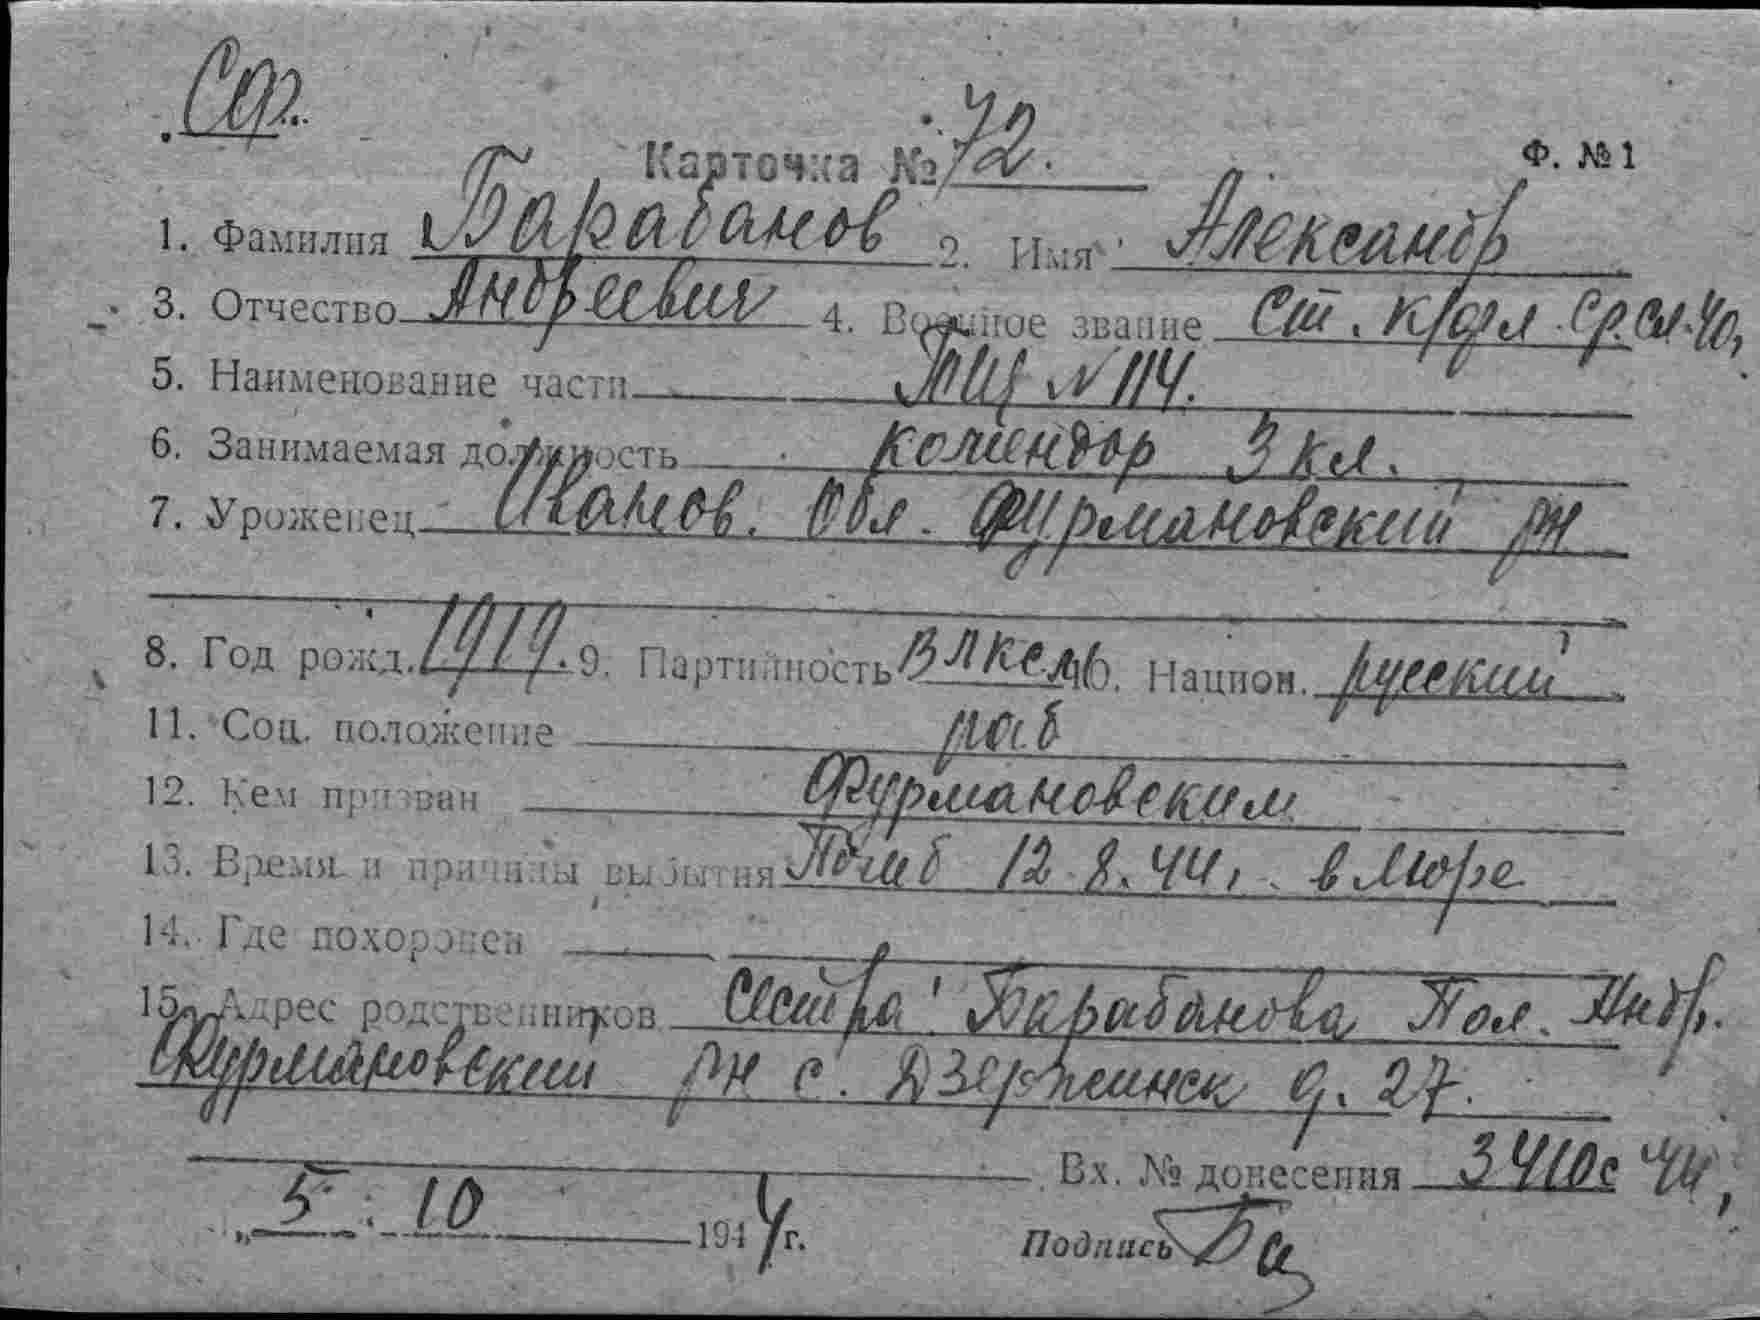 Сф.
Карточка № 72. Ф. №1
1. Фамилия Барабанов 2. Имя Александр
3. Отчество Андреевич 4. Военное звание Ст. к/фл. Ср. сл. 40,
5. Наименование части ТЩ N 114.
6. Занимаемая должность комендор 3 кл.
7. Уроженец Иванов. Обл. Фурмановский рн
8. Год рожд. 1919. 9. Партийность ВЛКСМ 10. Национ. русский
11. Соц. положение раб
12. Кем призван Фурмановским
13. Время и причины выбытия Погиб 12.8.44, в море
14. Где похоронен
15. Адрес родственников сестра Барабанова Пол. Андр.
Фурмановский рн с. Дзержинск д. 27.
Вх. № донесения 3410с 44,
„ 5 . 10 1944 г. Подпись